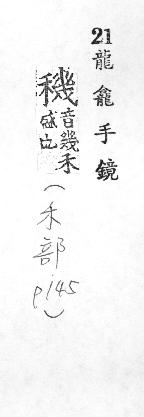 21 龍龕手鏡
穖音幾禾盛皃
（禾部 p145）